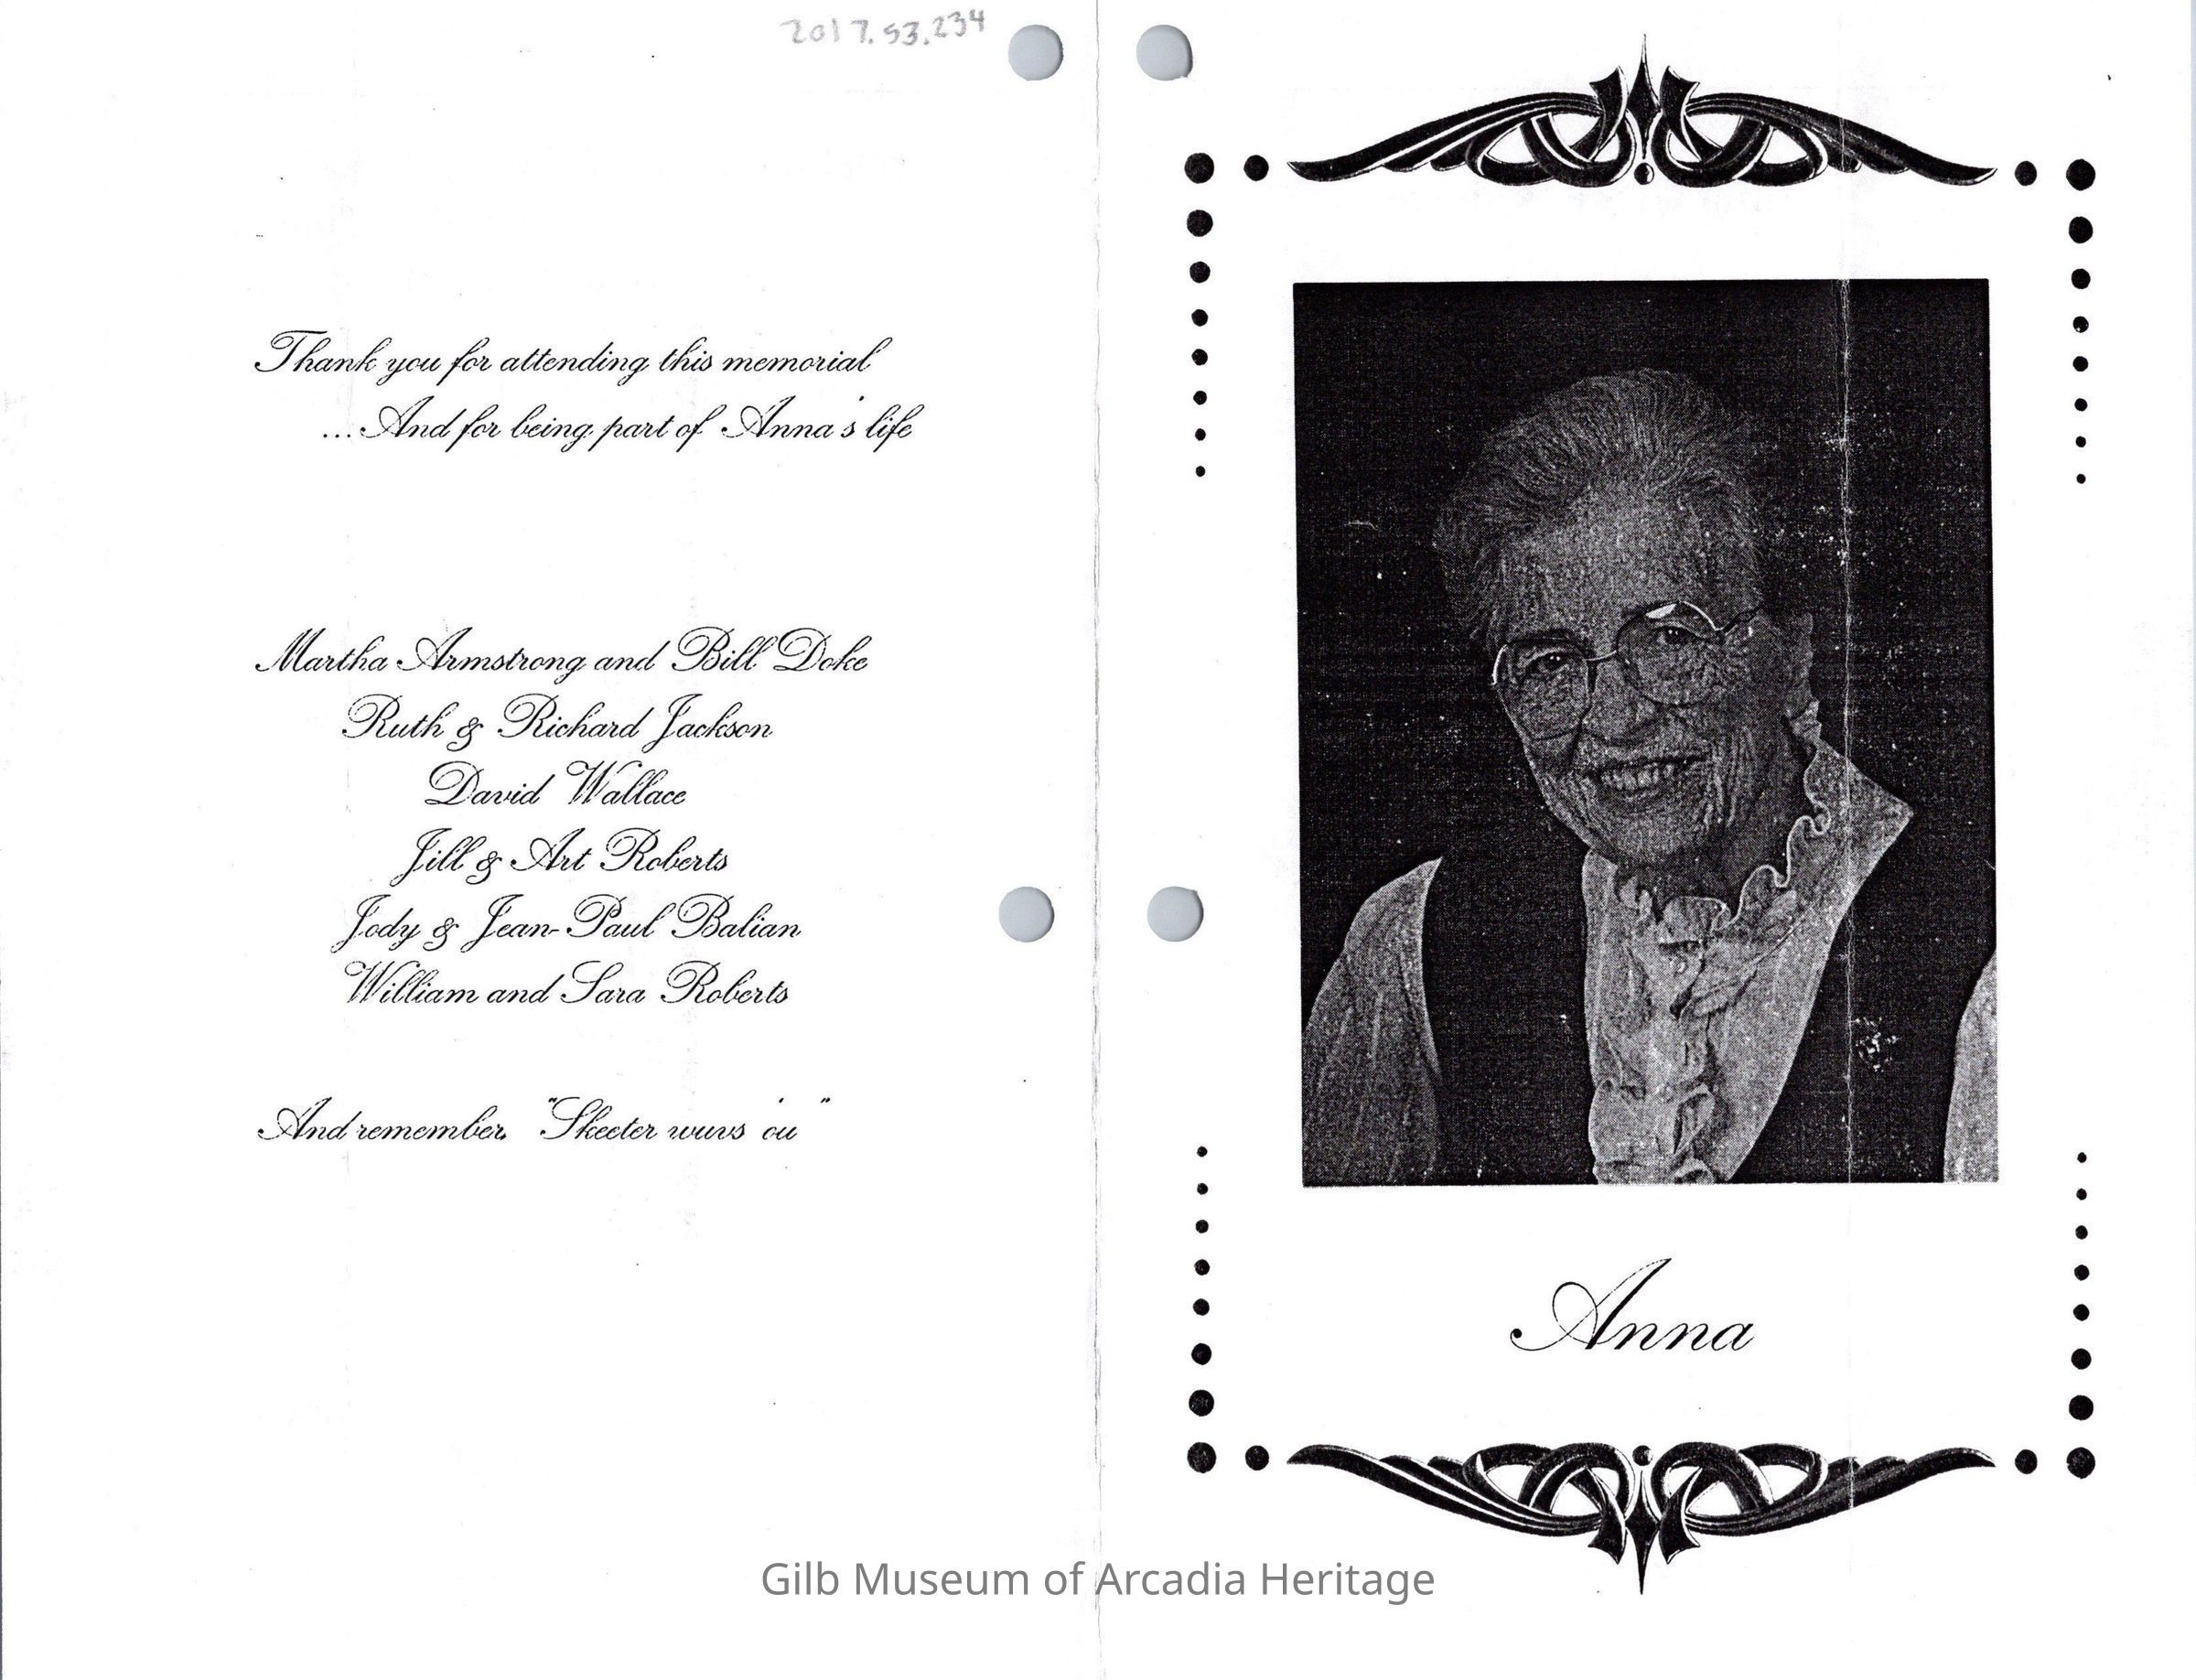 2017.53.234
Thank you for attending this memorial
...And for being part of Anna's life
Martha Armstrong and Bill Doke
Ruth & Richard Jackson
David Wallace
Jill & Art Roberts
Jody & Jean-Paul Balian
William and Sara Roberts
And remember, "Skeeter wuvs 'ou'"
Anna
Gilb Museum of Arcadia Heritage